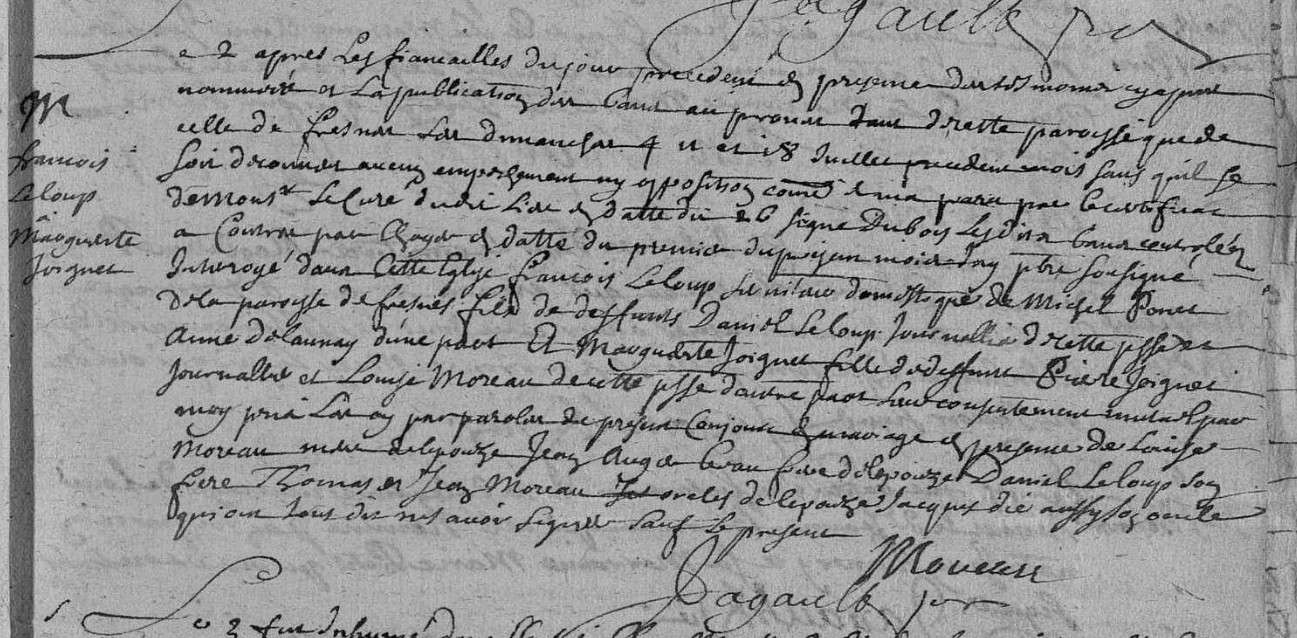 Pagault pr
M
francois
Leloup
Marguerite
Joignet
Le 2 apres Les fiancailles du jour precedent en presence des tesmoins cy apres
nommés et La publication des bans au prosne tant de cette paroisse que de
celle de fresnes Les dimanches 4 11 et 18 Juillet precedent mois sans quil se
soit decouvert aucun empeschement ny opposition comme il ma paru par le certificat
de Monsr Le Curé dudit Lieu en datte du 26 signé Dubois Lesdits bans controlés
a par en datte du premier du present mois Jay pbre sousigné
Interogé dans Cette Eglise francois Leloup domestique de Michel
de la paroisse de fresnes fils de deffunts Daniel Leloup Journallier de cette psse et
Anne Delaunay d'une part Et Marguerite Joignet fille de deffunt Pierre Joignet
Journallier et Louise Moreau de cette psse d'autre part Leur consentement mutuel par
moy pris Les ay par paroles de present Conjoints en mariage en presence de Louise
Moreau mere de lepouze Jean Auger beau frere de lepouze Daniel Leloup son
frere Thomas et Jean Moreau oncles de lepouze Jacques aussy son oncle
qui ont tous dit ne savoir signer sauf le present
Moreau
Pagault pr
Le 3 fut Inhumé